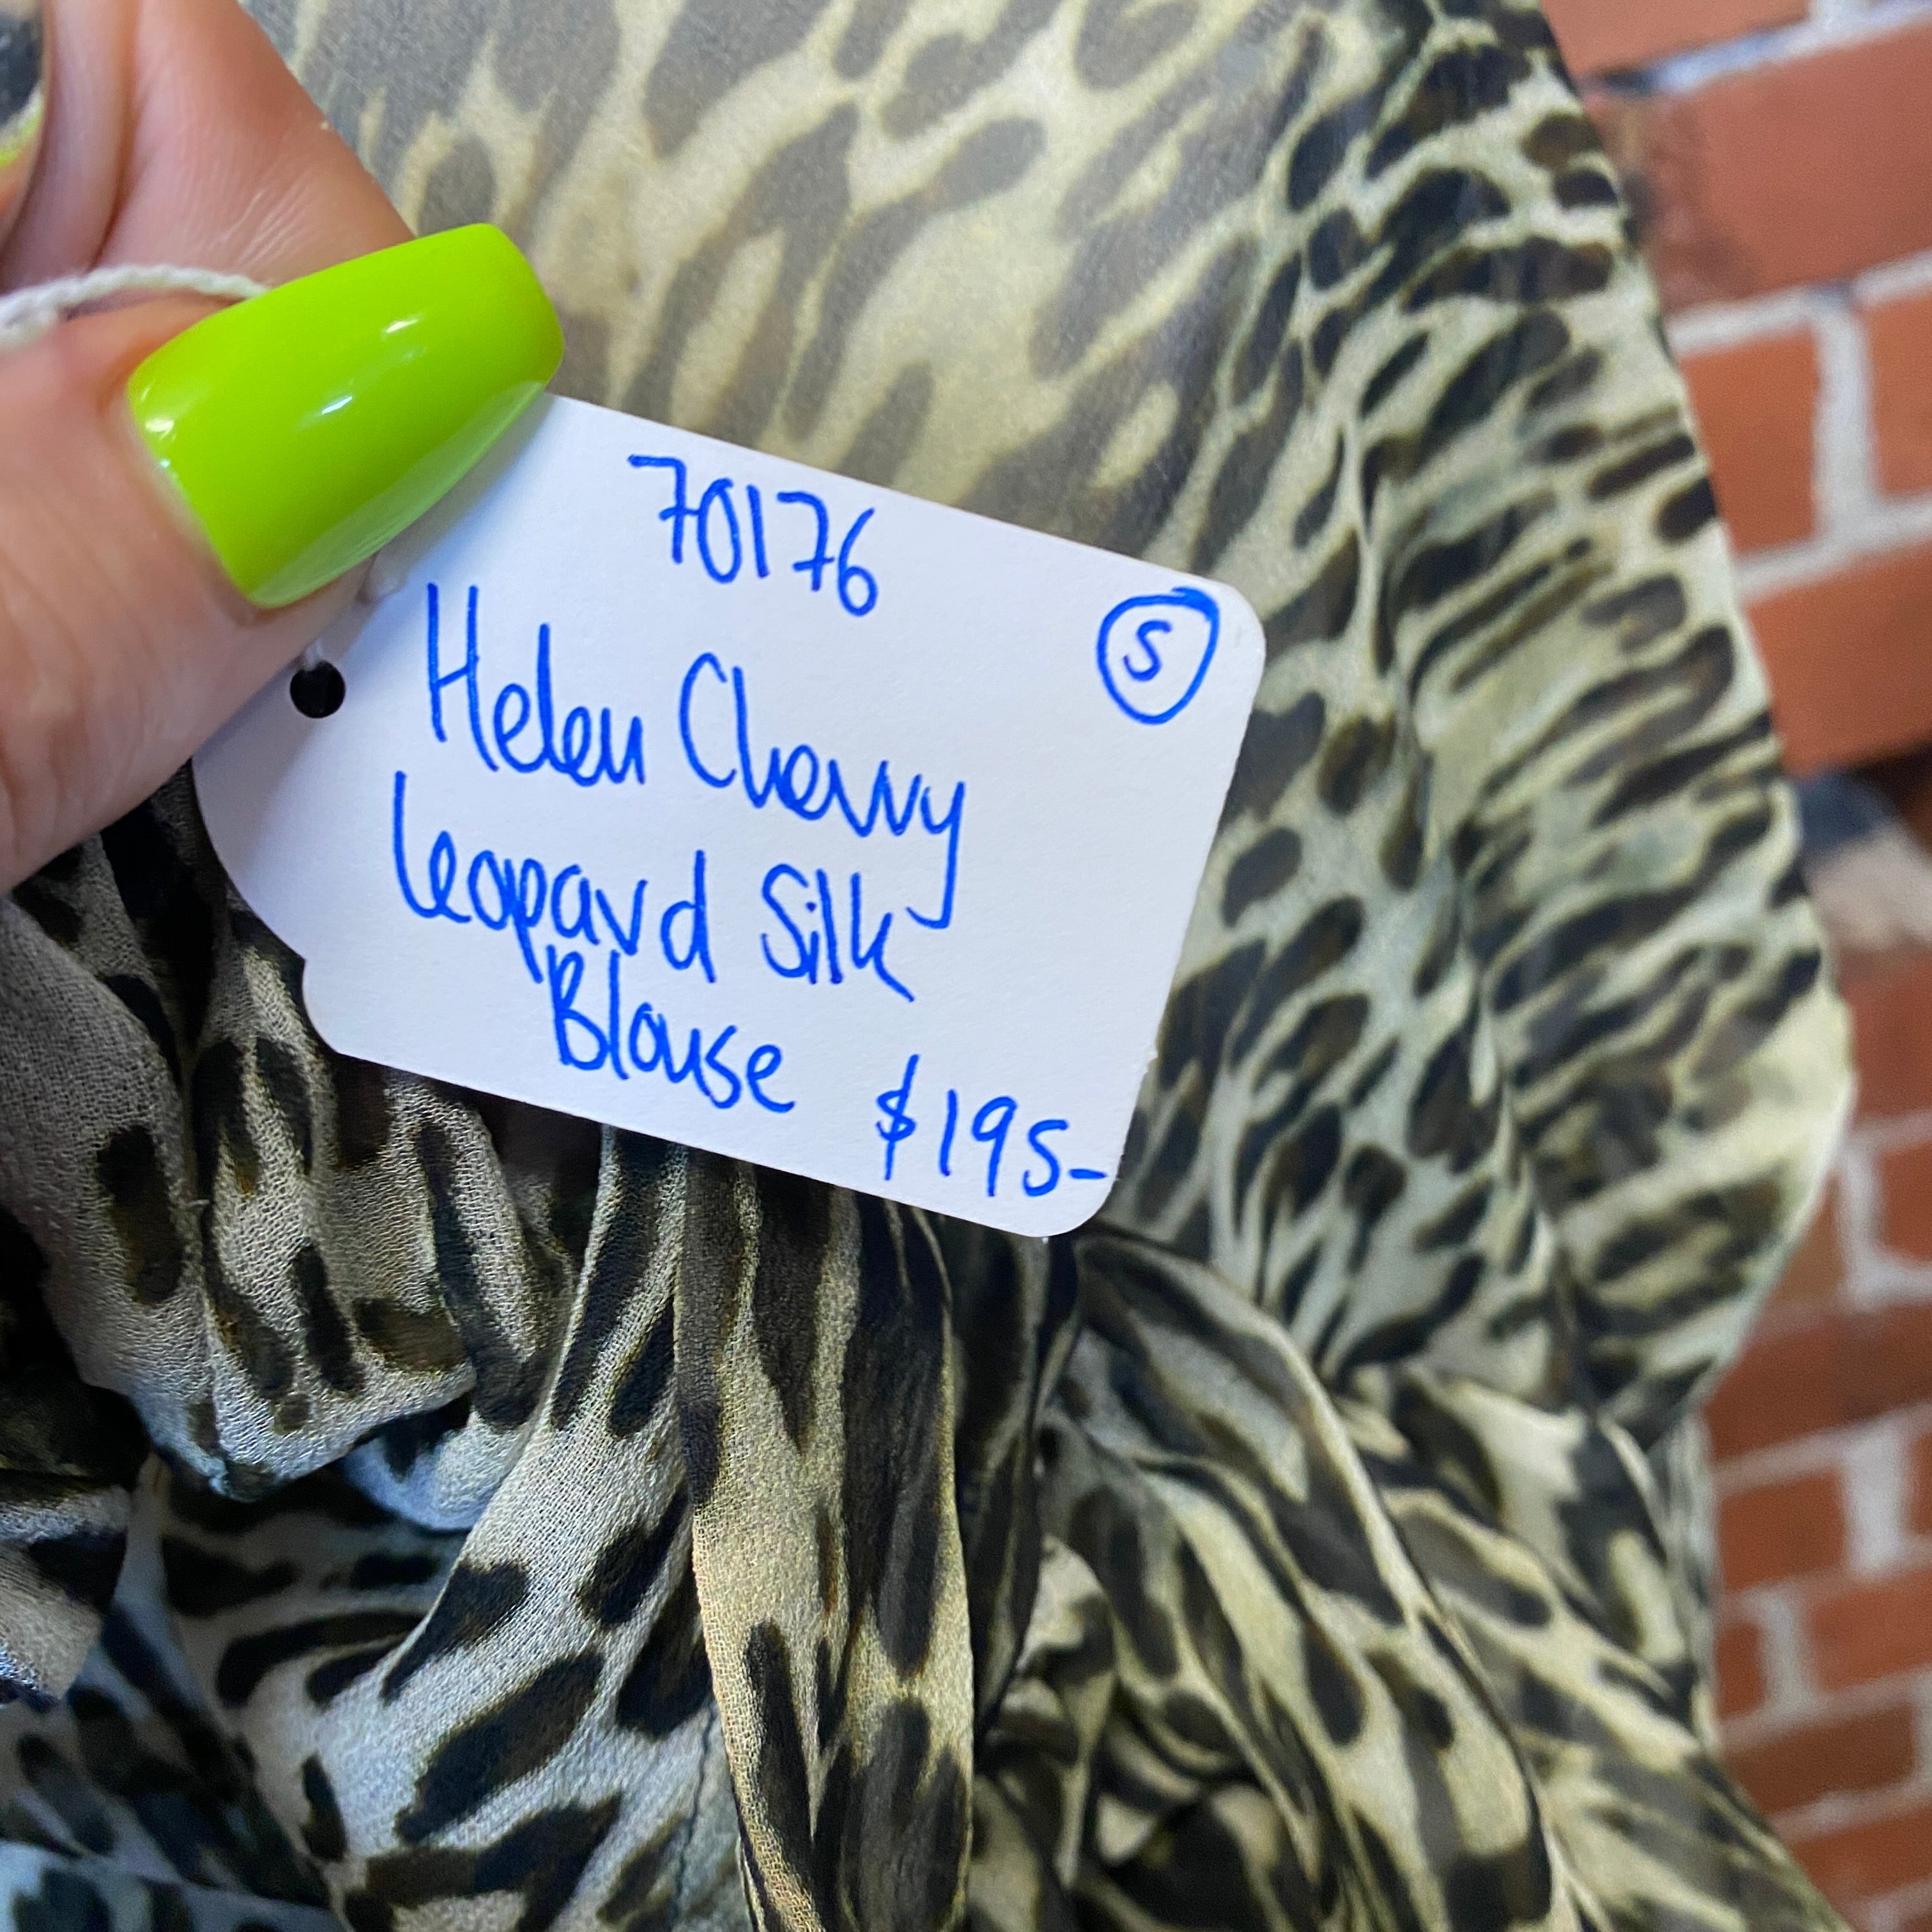 70176
S
Helen Cherry
Leopard Silk
Blouse
$195-